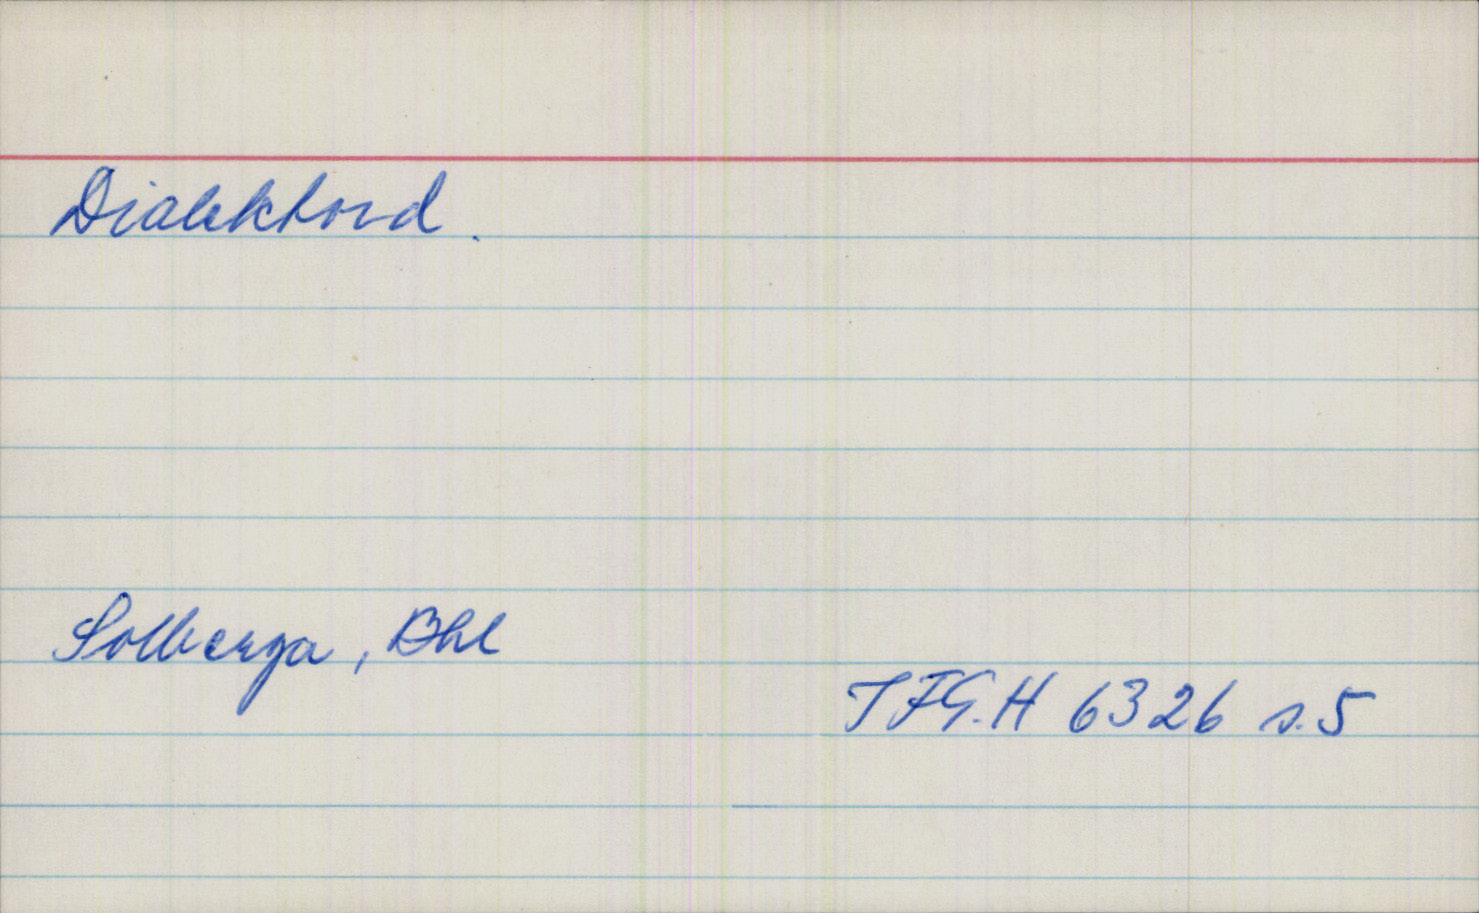 Dialektord.
Solberga, Bhl
IFG.H 6326 s.5